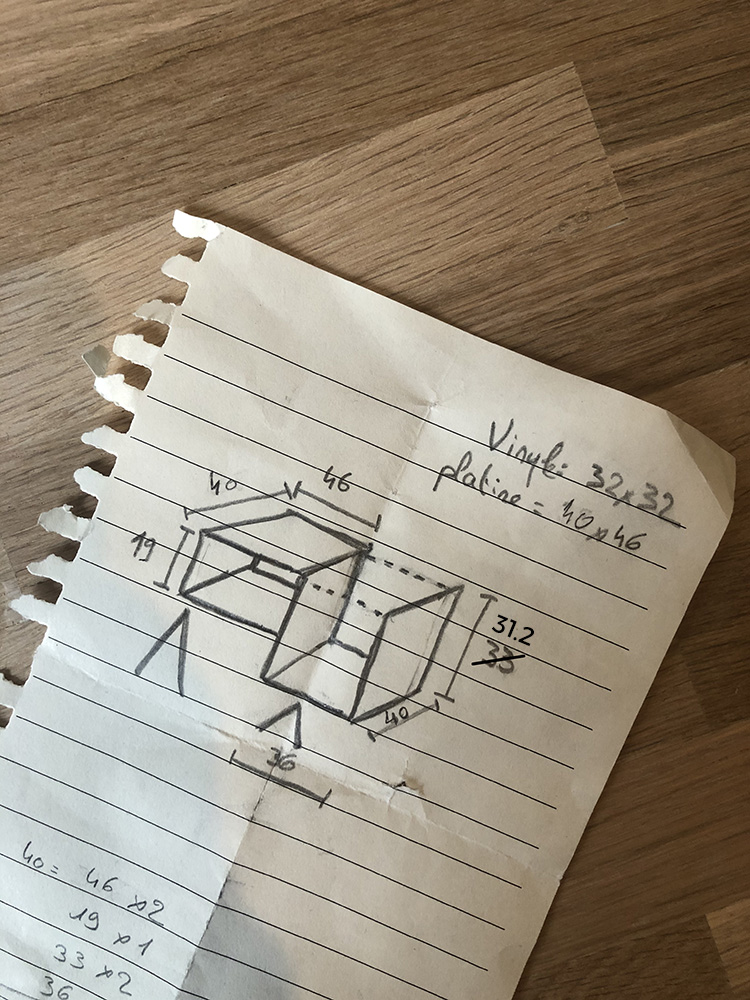 Vinyle: 32x32
platine = 40x46
40
46
19
31.2
33
40
36
40= 46 x2
19 x1
33 x2
36